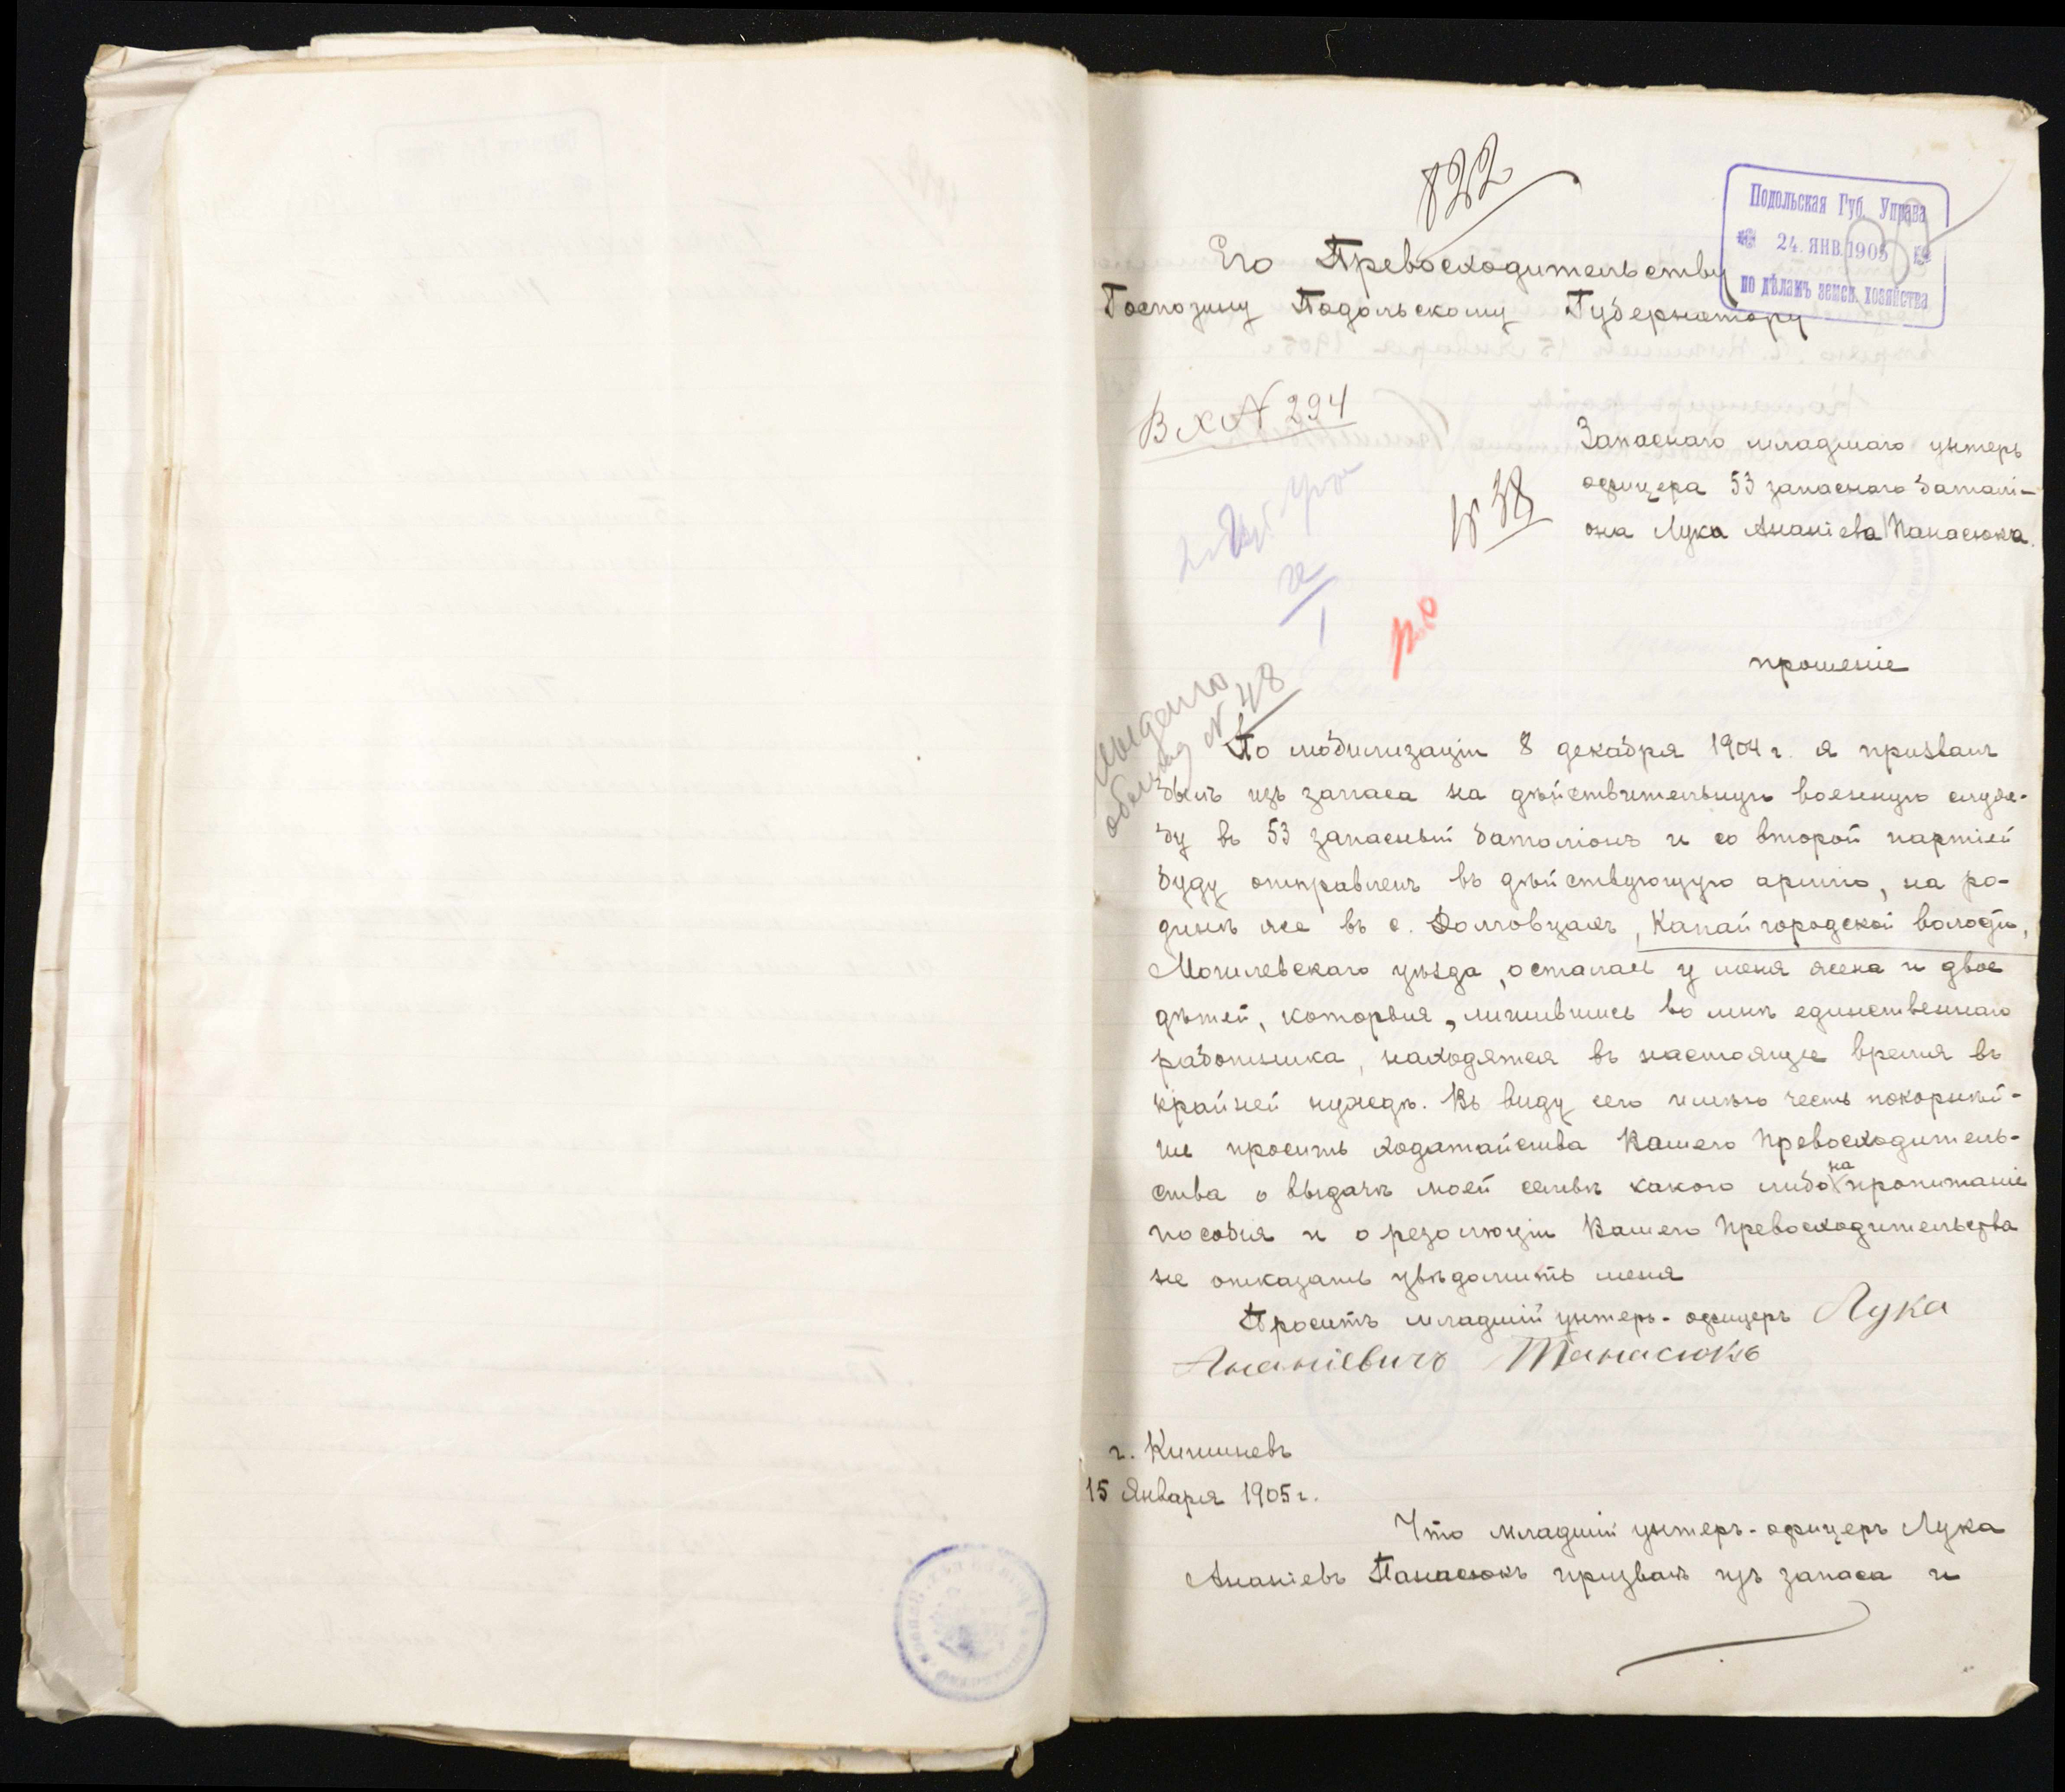 822
Подольская Губ. Управа
24. ЯНВ. 1905
по дѣламъ земск. хозяйства
Его Превосходительству
Господину Подольскому Губернатору
Вх № 294
Запаснаго младшаго унтеръ
офицера 53 запаснаго баталі-
она Лука Ананіева Панасюка.
№ 38
прошеніе
№ 48
По мобилизаціи 8 декабря 1904 г. я призванъ
былъ изъ запаса на дѣйствительную военную служ-
бу въ 53 запасный баталіонъ и со второй партіей
буду отправленъ въ дѣйствующую армію, на ро-
динѣ же въ с. Долговцахъ, Капайгородской волости,
Могилевскаго уѣзда, осталась у меня жена и двое
дѣтей, которыя, лишившись во мнѣ единственнаго
работника, находятся въ настоящее время въ
крайней нуждѣ. Въ виду сего имѣю честь покорнѣй-
ше просить ходатайства Вашего Превосходитель-
ства о выдачѣ моей семьѣ какого либо на пропитаніе
пособія и о резолюціи Вашего Превосходительства
не отказать увѣдомить меня
Проситъ младшій унтеръ-офицеръ Лука
Ананіевичъ Панасюкъ
г. Кишиневъ
15 Января 1905 г.
Что младшій унтеръ-офицеръ Лука
Ананіевъ Панасюкъ призванъ изъ запаса и